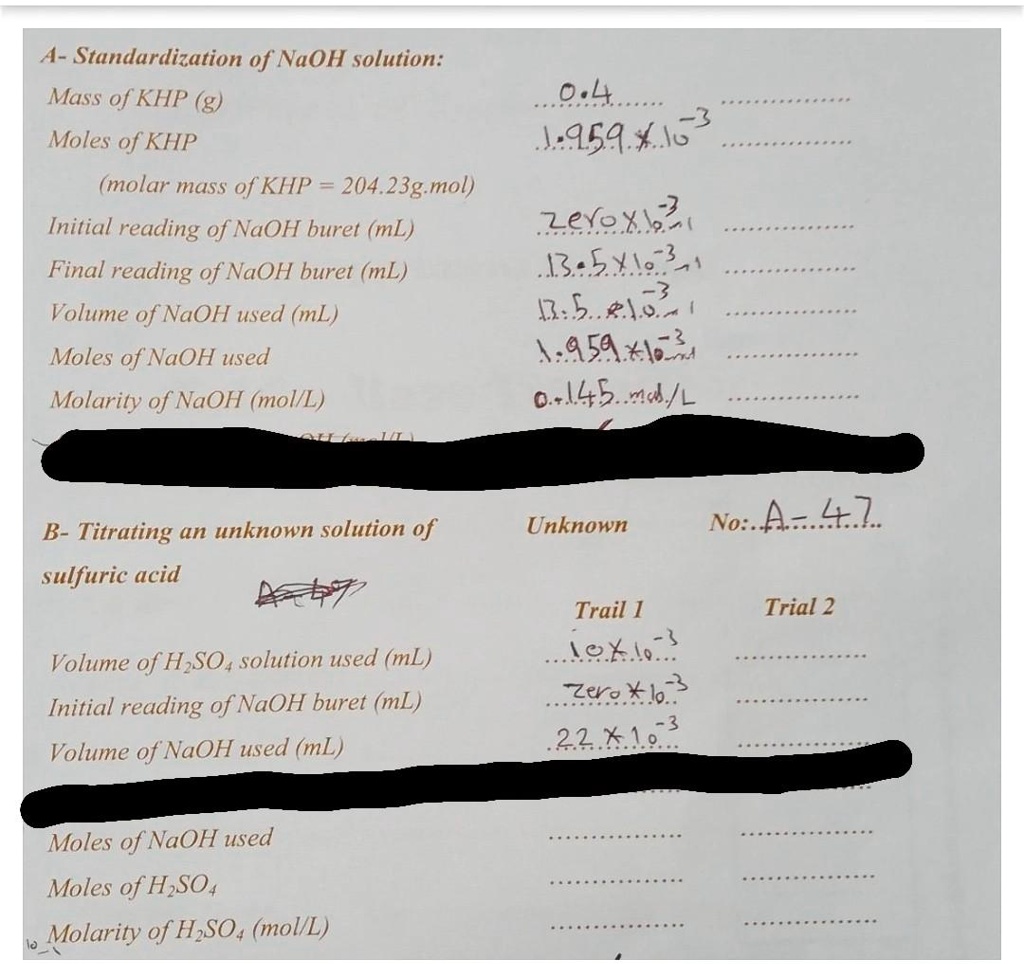 A- Standardization of NaOH solution:
Mass of KHP (g) 0.4 ................
Moles of KHP 1.959 * 10⁻³ ................
(molar mass of KHP = 204.23g.mol)
Initial reading of NaOH buret (mL) zero X 10⁻³ ................
Final reading of NaOH buret (mL) 13.5 X 10⁻³ ................
Volume of NaOH used (mL) 13.5 * 10⁻³ ................
Moles of NaOH used 1.959 * 10⁻³ ................
Molarity of NaOH (mol/L) 0.145 mol/L ................
B- Titrating an unknown solution of Unknown No: A-47
sulfuric acid
Trail 1 Trial 2
Volume of H₂SO₄ solution used (mL) 10 X 10⁻³ ................
Initial reading of NaOH buret (mL) zero * 10⁻³ ................
Volume of NaOH used (mL) 22 * 10⁻³ ................
Moles of NaOH used ................ ................
Moles of H₂SO₄ ................ ................
Molarity of H₂SO₄ (mol/L) ................ ................